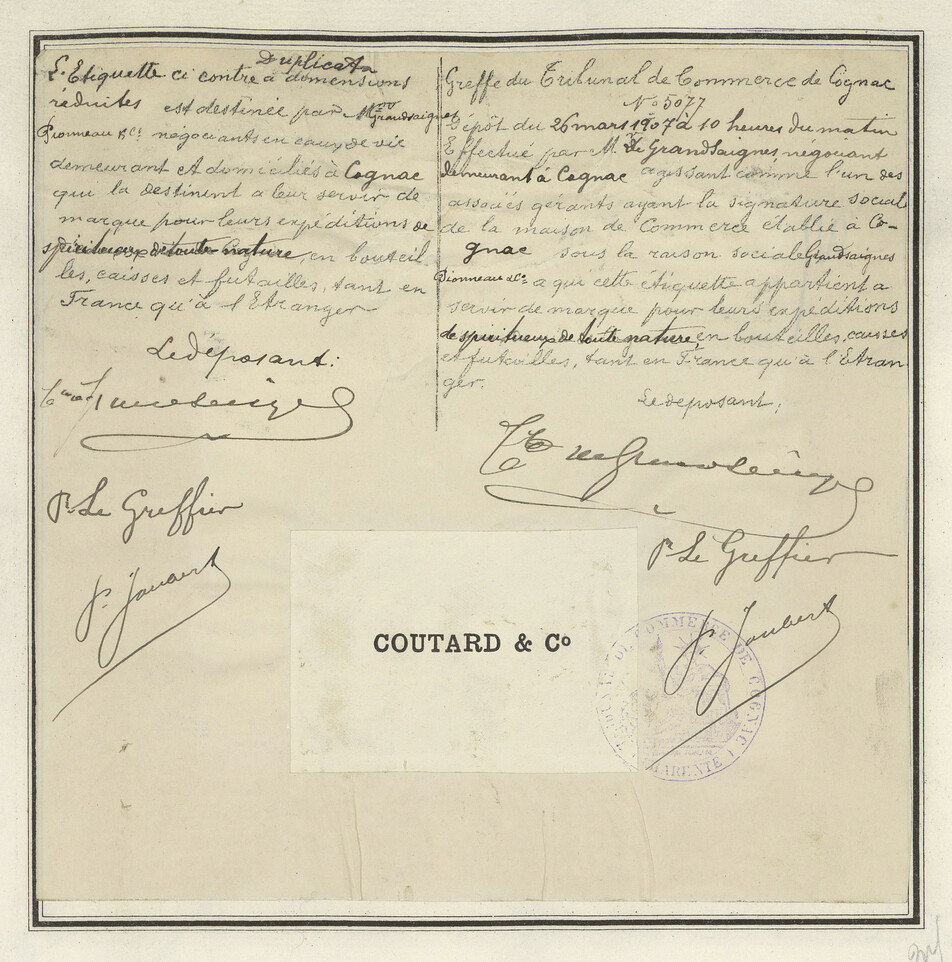 Duplicata
L'Etiquette ci contre à dimensions
réduites est destinée par M
Grandsaignes
Pionneau & Cie négociants en eaux de vie
demeurant et domiciliés à Cognac
qui la destinent a leur servir de
marque pour leurs expéditions de
spiritueux de toute nature, en bouteil
les, caisses et futailles, tant en
France qu'à l'Etranger
Le déposant:
Pr Le Greffier
P. Jaubert
Greffe du Tribunal de Commerce de Cognac
No 5077
Dépôt du 26 mars 1907 à 10 heures du matin
Effectué par M Grandsaignes, négociant
demeurant à Cognac agissant comme l'un des
associés gérants ayant la signature social
de la maison de Commerce établie à Co-
gnac sous la raison sociale Grandsaignes
Pionneau & Cie a qui cette étiquette appartient a
servir de marque pour leurs expéditions
de spiritueux de toute nature, en bouteilles, caisses
et futailles, tant en France qu'à l'Etran
ger.
Le déposant,
Pr Le Greffier
P. Jaubert
COUTARD & Co
TRIBUNAL DE COMMERCE DE COGNAC
CHARENTE